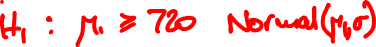 H₁ : μ₁ ⩾ 720 Normal(μ,σ)